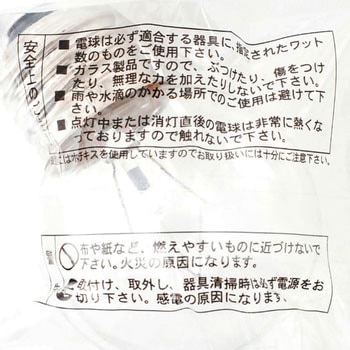 安全上のご
■ 電球は必ず適合する器具に、指定されたワット
数のものをご使用下さい。
■ ガラス製品ですので、ぶつけたり、傷をつけ
たり、無理な力を加えたりしないで下さい。
■ 雨や水滴のかかる場所でのご使用は避けて下
さい。
■ 点灯中または消灯直後の電球は非常に熱くな
っておりますので触れないで下さい。
ホチキスを使用していますのでお取り扱いには十分にご注意下さい。
布や紙など、燃えやすいものに近づけないで
下さい。火災の原因になります。
取付け、取外し、器具清掃時は必ず電源をお
切り下さい。感電の原因になります。